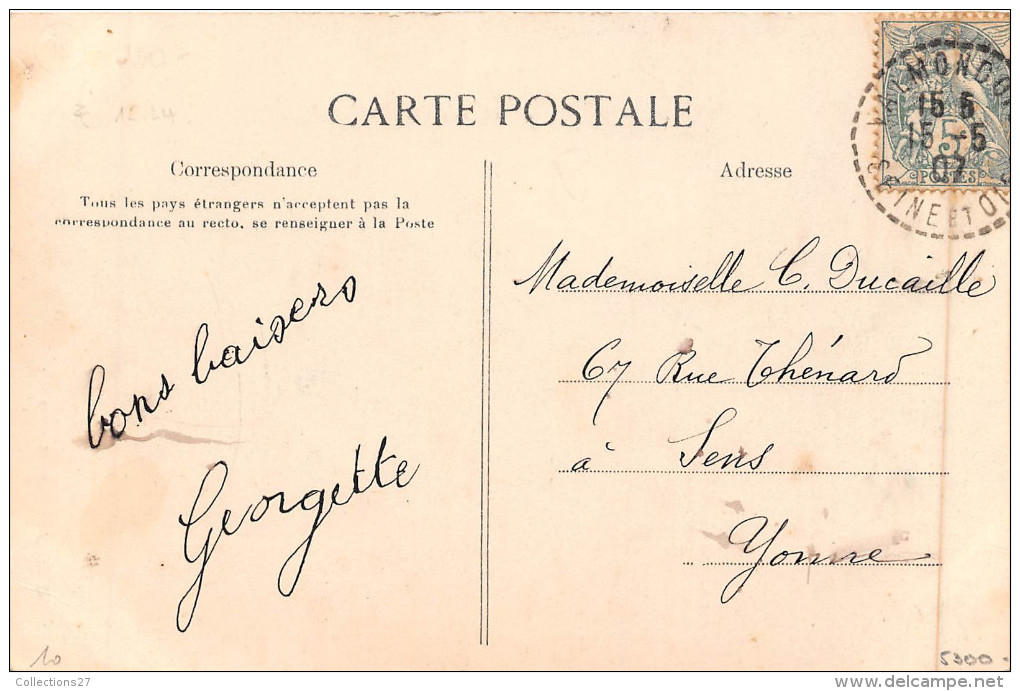 CARTE POSTALE
Correspondance
Tous les pays étrangers n'acceptent pas la
correspondance au recto, se renseigner à la Poste
bons baisers
Georgette
Adresse
Mademoiselle C. Ducaille
67 Rue Thénard
à Sens
Yonne
VALMONDO
15 5
15 -5
07
SINE ET OI
5
POSTES
10
5300
Collections27
www.delcampe.net